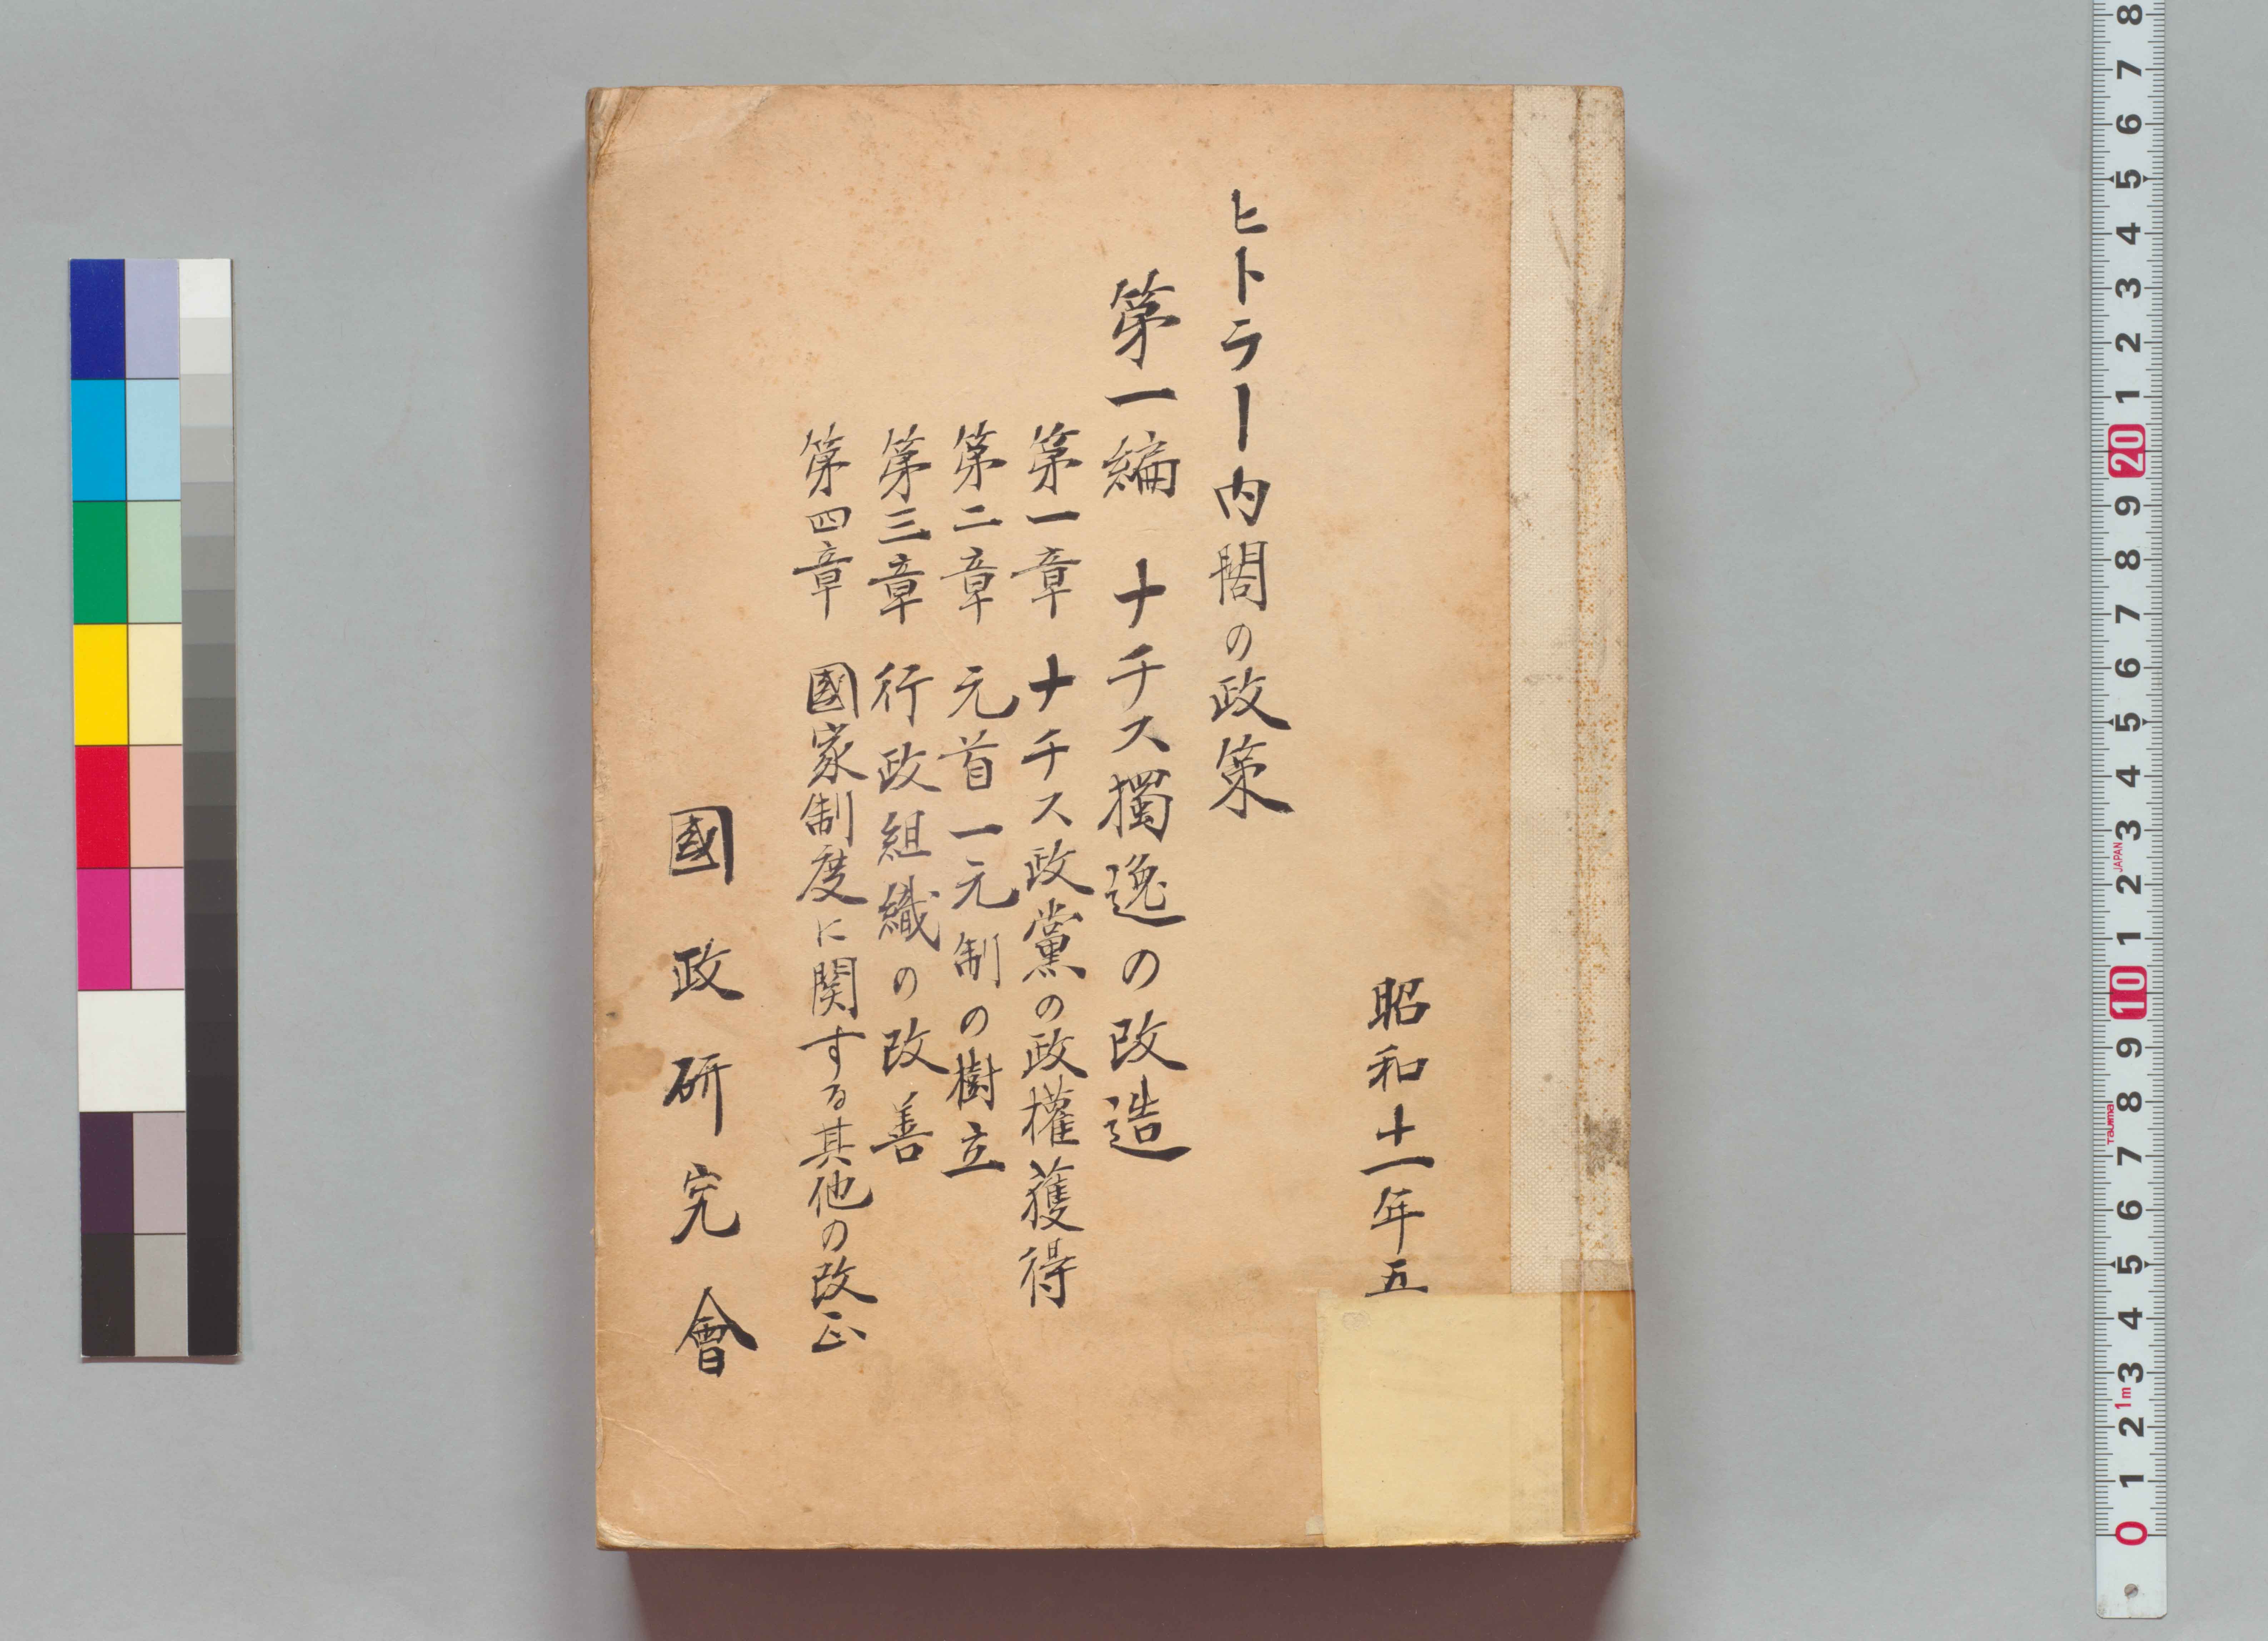 昭和十一年五
ヒトラー内閣の政策
第一編 ナチス獨逸の改造
第一章 ナチス政黨の政權獲得
第二章 元首一元制の樹立
第三章 行政組織の改善
第四章 國家制度に関する其他の改正
國政研究會
8
7
6
5
4
3
2
1
20
9
8
7
6
5
4
3
JAPAN
2
1
10
9
8
Tajima
7
6
5
4
3
1m
2
1
0